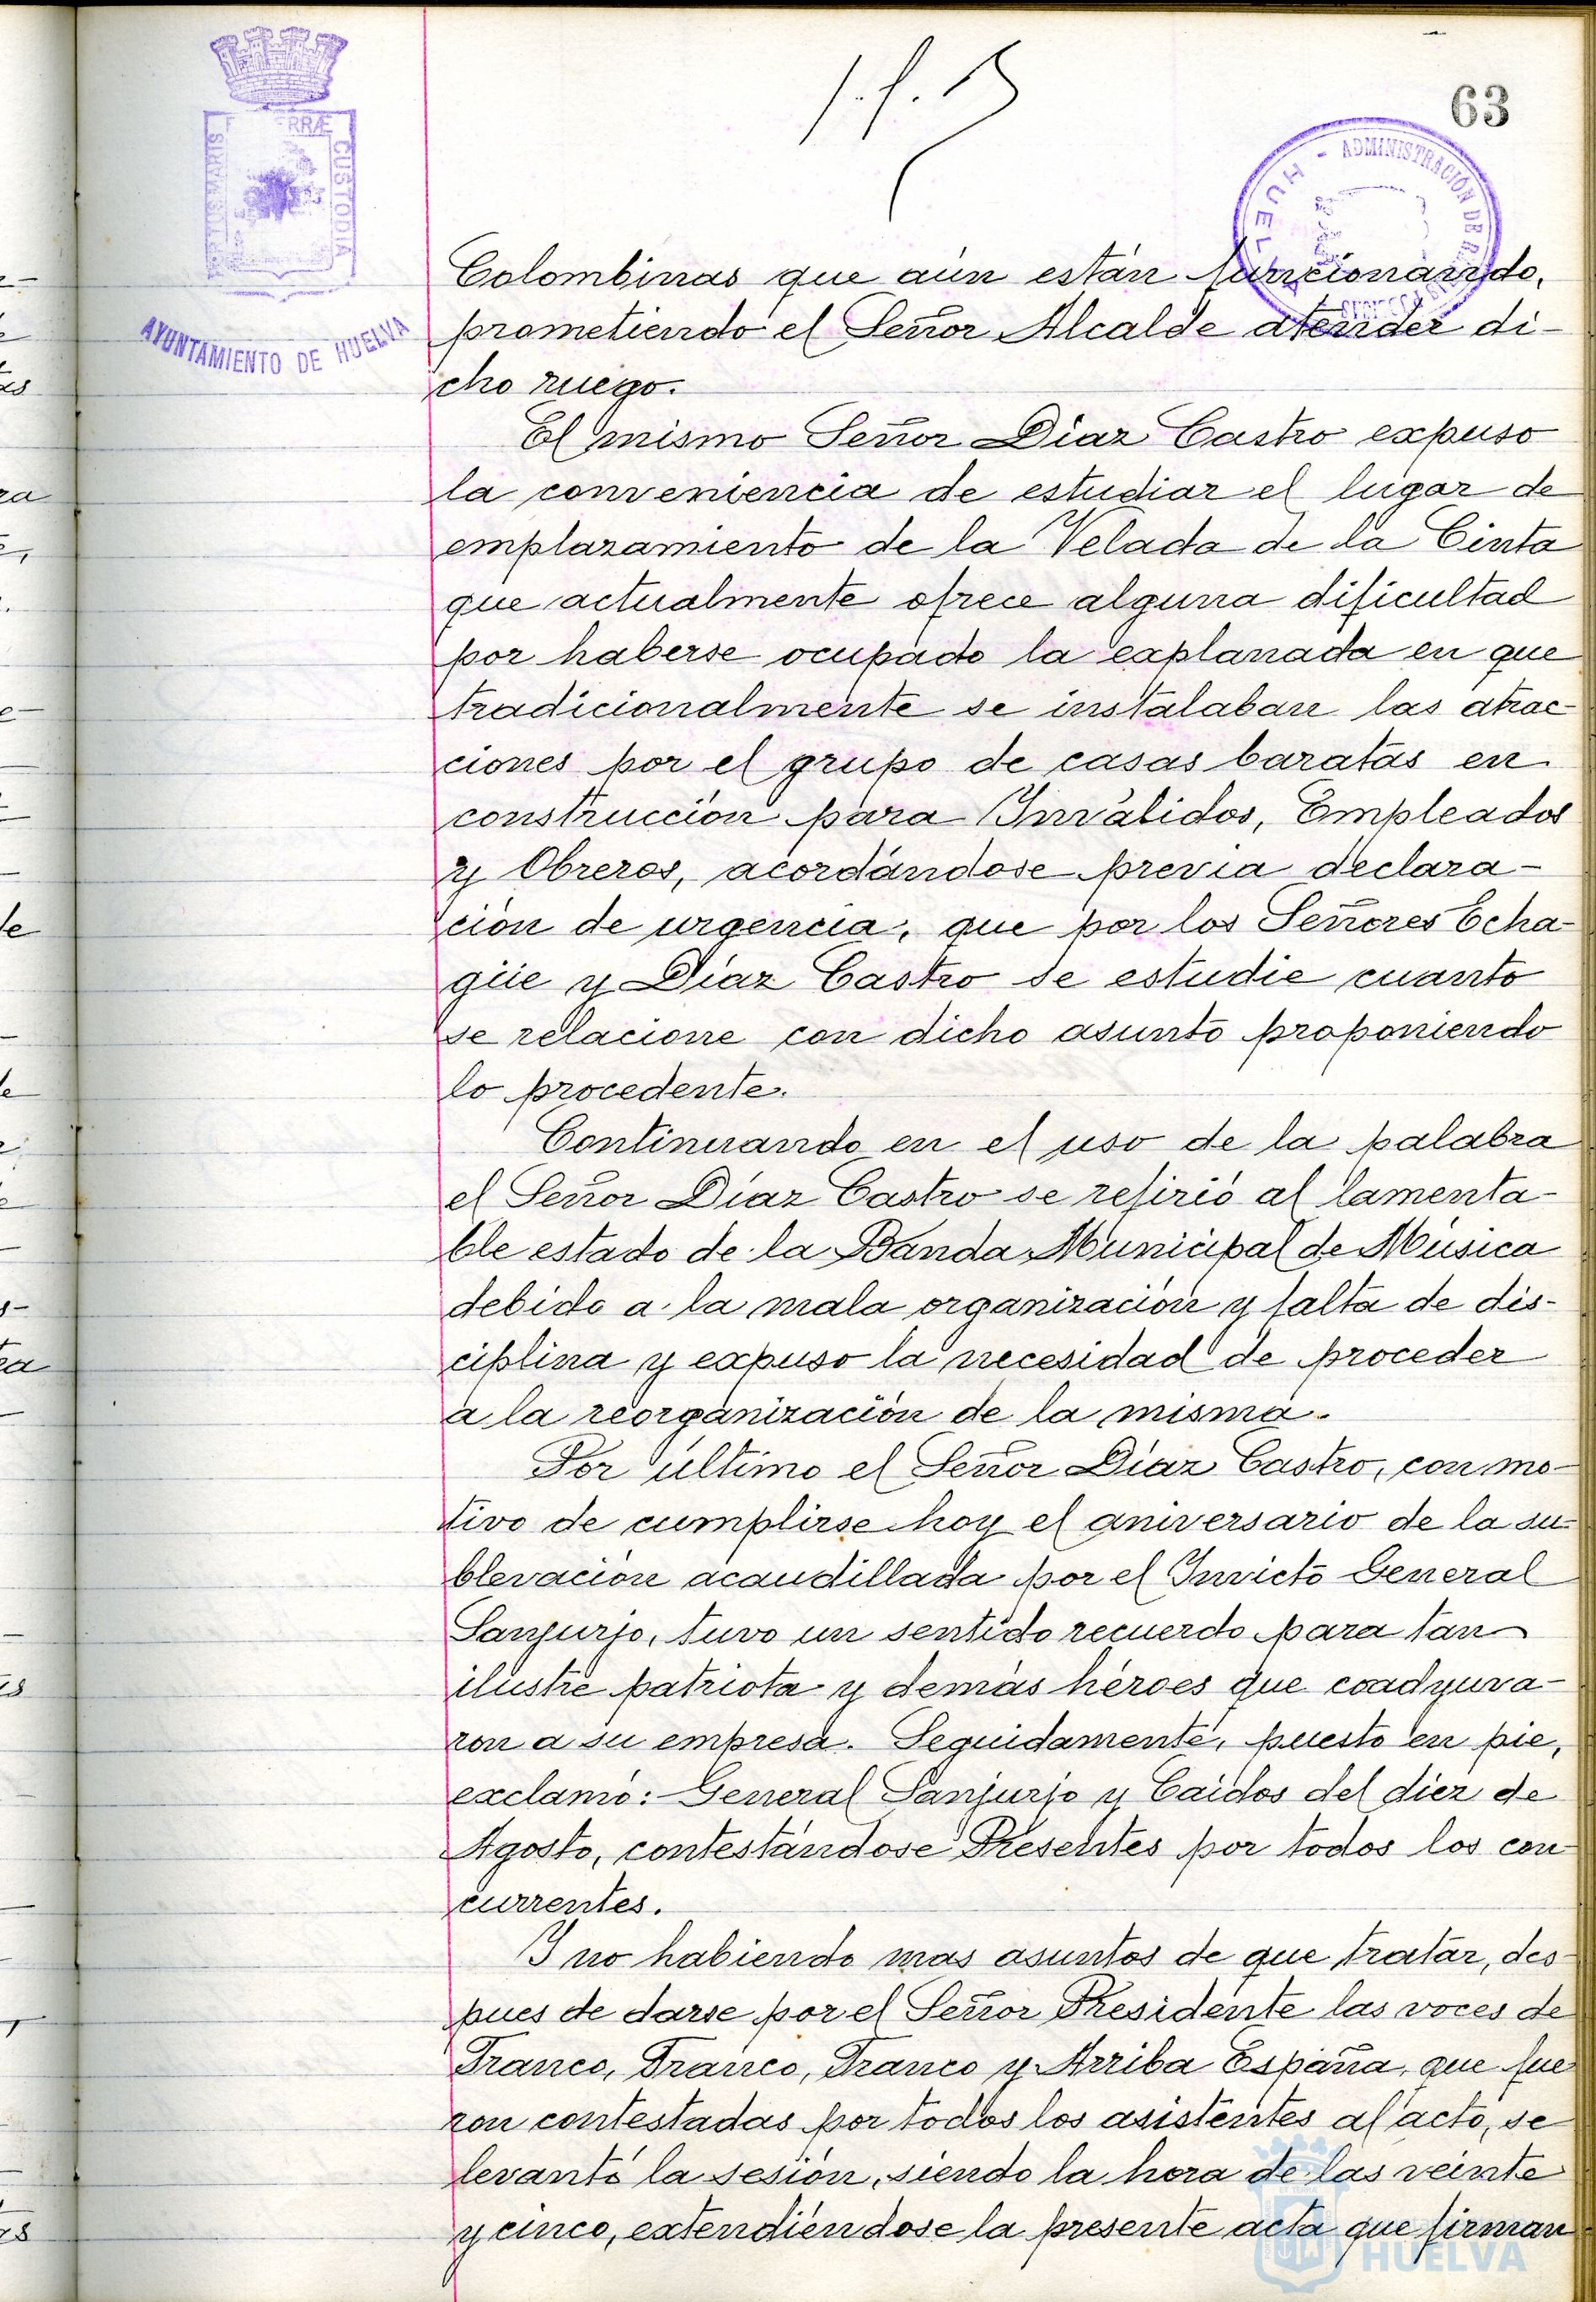 63
PORTUS MARIS
RRÆ
CUSTODIA
AYUNTAMIENTO DE HUELVA
HUEL
- ADMINISTRACIÓN DE
Colombinas que aún están funcionando,
prometiendo el Señor Alcalde atender di-
cho ruego.
El mismo Señor Díaz Castro expuso
la conveniencia de estudiar el lugar de
emplazamiento de la Velada de la Cinta
que actualmente ofrece alguna dificultad
por haberse ocupado la explanada en que
tradicionalmente se instalaban las atrac-
ciones por el grupo de casas baratas en
construcción para Inválidos, Empleados
y Obreros, acordándose previa declara-
ción de urgencia, que por los Señores Echa-
güe y Díaz Castro se estudie cuanto
se relacione con dicho asunto proponiendo
lo procedente.
Continuando en el uso de la palabra
el Señor Díaz Castro se refirió al lamenta-
ble estado de la Banda Municipal de Música
debido a la mala organización y falta de dis-
ciplina y expuso la necesidad de proceder
a la reorganización de la misma.
Por último el Señor Díaz Castro, con mo-
tivo de cumplirse hoy el aniversario de la su-
blevación acaudillada por el Invicto General
Sanjurjo, tuvo un sentido recuerdo para tan
ilustre patriota y demás héroes que coadyuva-
ron a su empresa. Seguidamente, puesto en pie,
exclamó:- General Sanjurjo y Caidos del diez de
Agosto, contestándose Presentes por todos los con
currentes.
Y no habiendo mas asuntos de que tratar, des-
pues de darse por el Señor Presidente las voces de
Franco, Franco, Franco y Arriba España, que fue
ron contestadas por todos los asistentes al acto, se
levantó la sesión, siendo la hora de las veinte
y cinco, extendiéndose la presente acta que firman
HUELVA